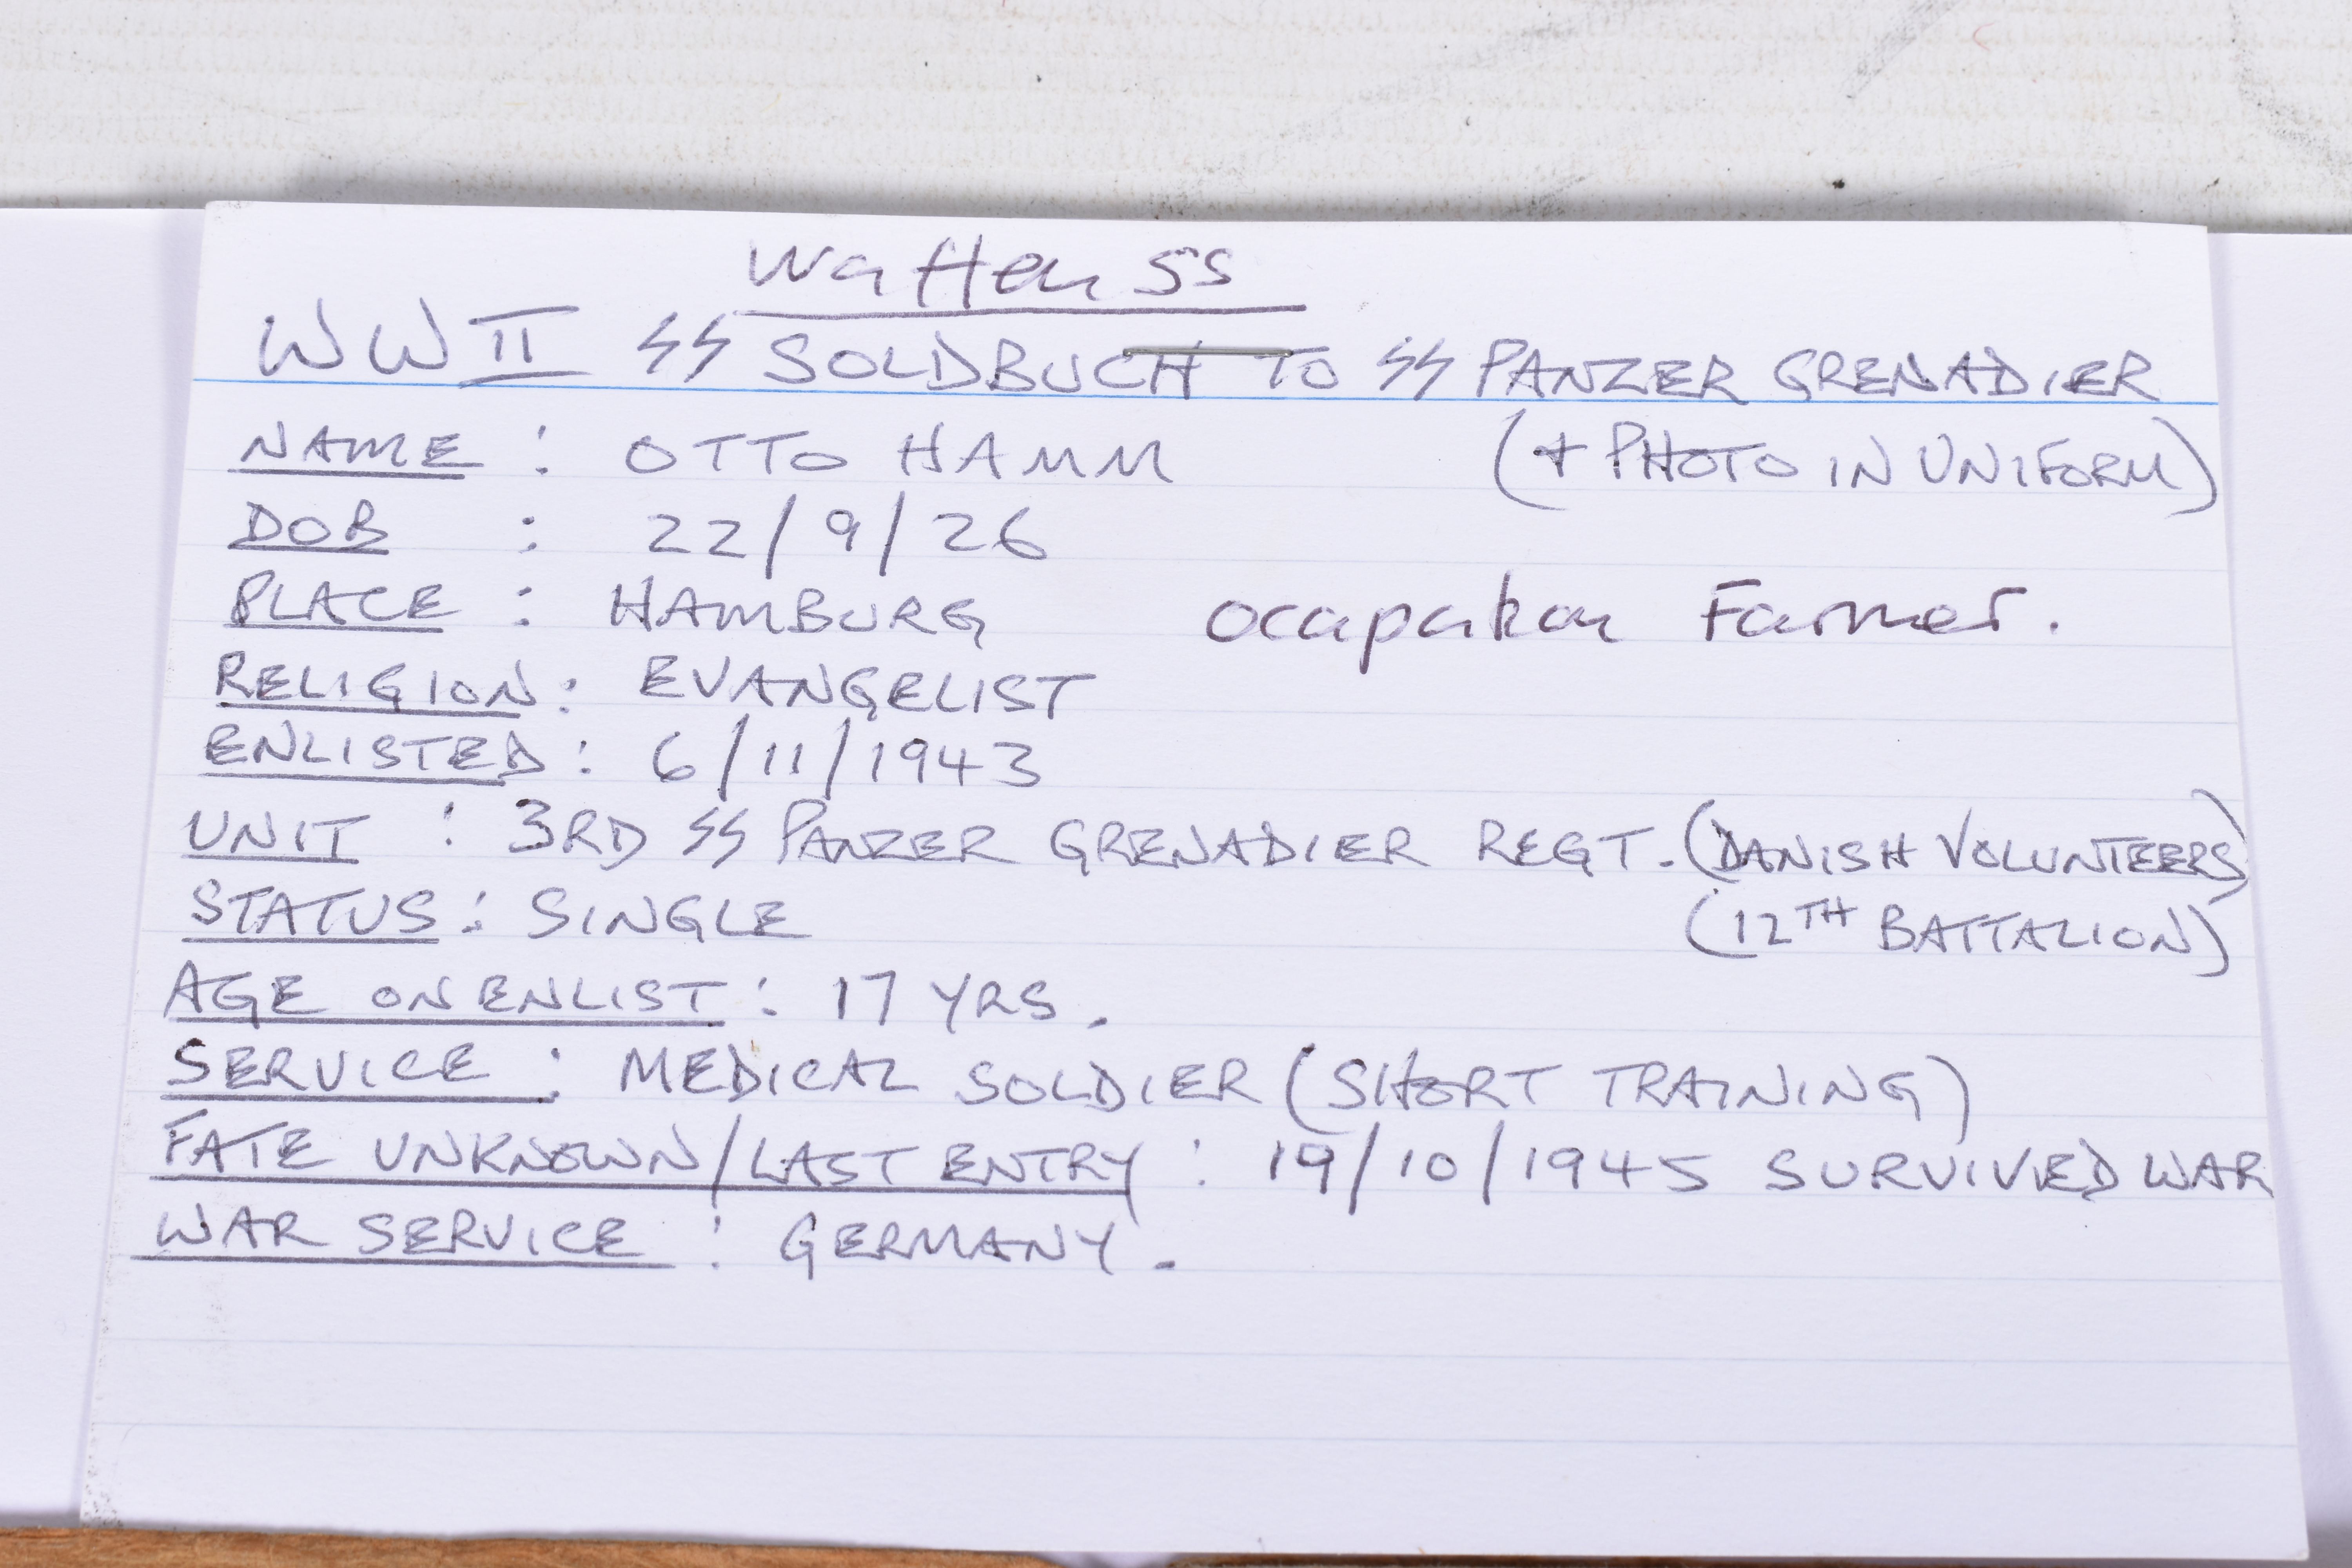 Waffen SS
WW II SS SOLDBUCH TO SS PANZER GRENADIER
NAME : OTTO HAMM (+ PHOTO IN UNIFORM)
DOB : 22/9/26
PLACE : HAMBURG ocapation Farmer.
RELIGION : EVANGELIST
ENLISTED : 6/11/1943
UNIT : 3RD SS PANZER GRENADIER REGT. (DANISH VOLUNTEERS)
STATUS : SINGLE (12TH BATTALION)
AGE ON ENLIST : 17 YRS.
SERVICE : MEDICAL SOLDIER (SHORT TRAINING)
FATE UNKNOWN/LAST ENTRY : 19/10/1945 SURVIVED WAR
WAR SERVICE : GERMANY.